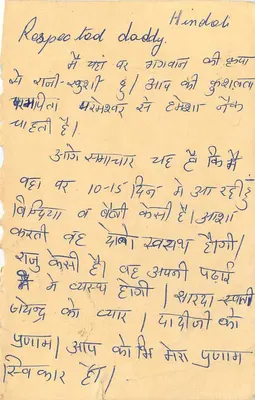 Hindoli
Respected daddy.
मैं यहां पर भगवान की कृपा
से राजी-खुशी हुं। आप की कुशलता
परमपिता परमेश्वर से हमेशा नेक
चाहती हुं।
आगे समाचार यह है कि मैं
वहा पर 10-15 दिन मे आ रही हुं
व बेबी केसी है। आशा
करती वह दोनो स्वस्थ होगी।
राजु केसी है। वह अपनी पढाई
में व्यस्थ होगी। शारदा
को प्यार। दादीजी को
प्रणाम। आप को भि मेरा प्रणाम
स्विकार हो।